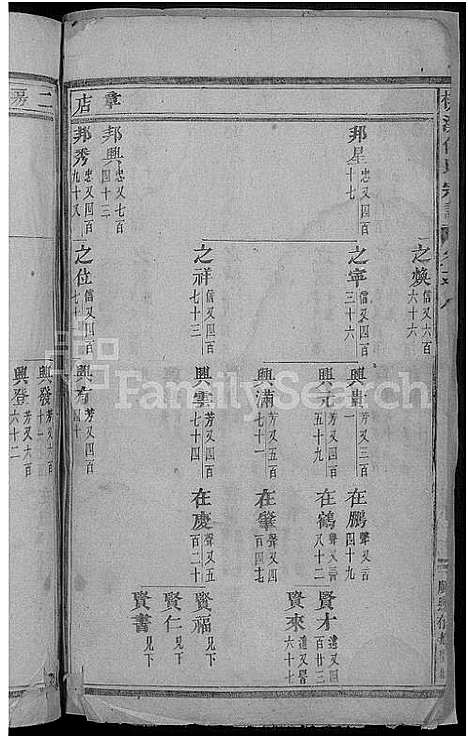 章店
之煥 信又六百六十六
邦星 忠又四百十七
之寧 信又四百三十六
興貴 芳又三百一
在鵬 聲又言四十九
興元 芳又四百五十九
在鶴 聲又言又十二
賢才 遠又百廿三
賢來 遠又言六十七
興滿 芳又五百七十一
在肇 聲又四百四十七
之祥 信又四百七十三
興雲 芳又四百七十四
在慶 聲又五百二十
賢福 見下
賢仁 見下
賢書 見下
邦興 忠又七百四十三
邦秀 忠又四百九十又
之位 信又四百七十
興有 芳又四百四十
二房
興發 芳又六百十一
興登 芳又六百六十二
FamilySearch